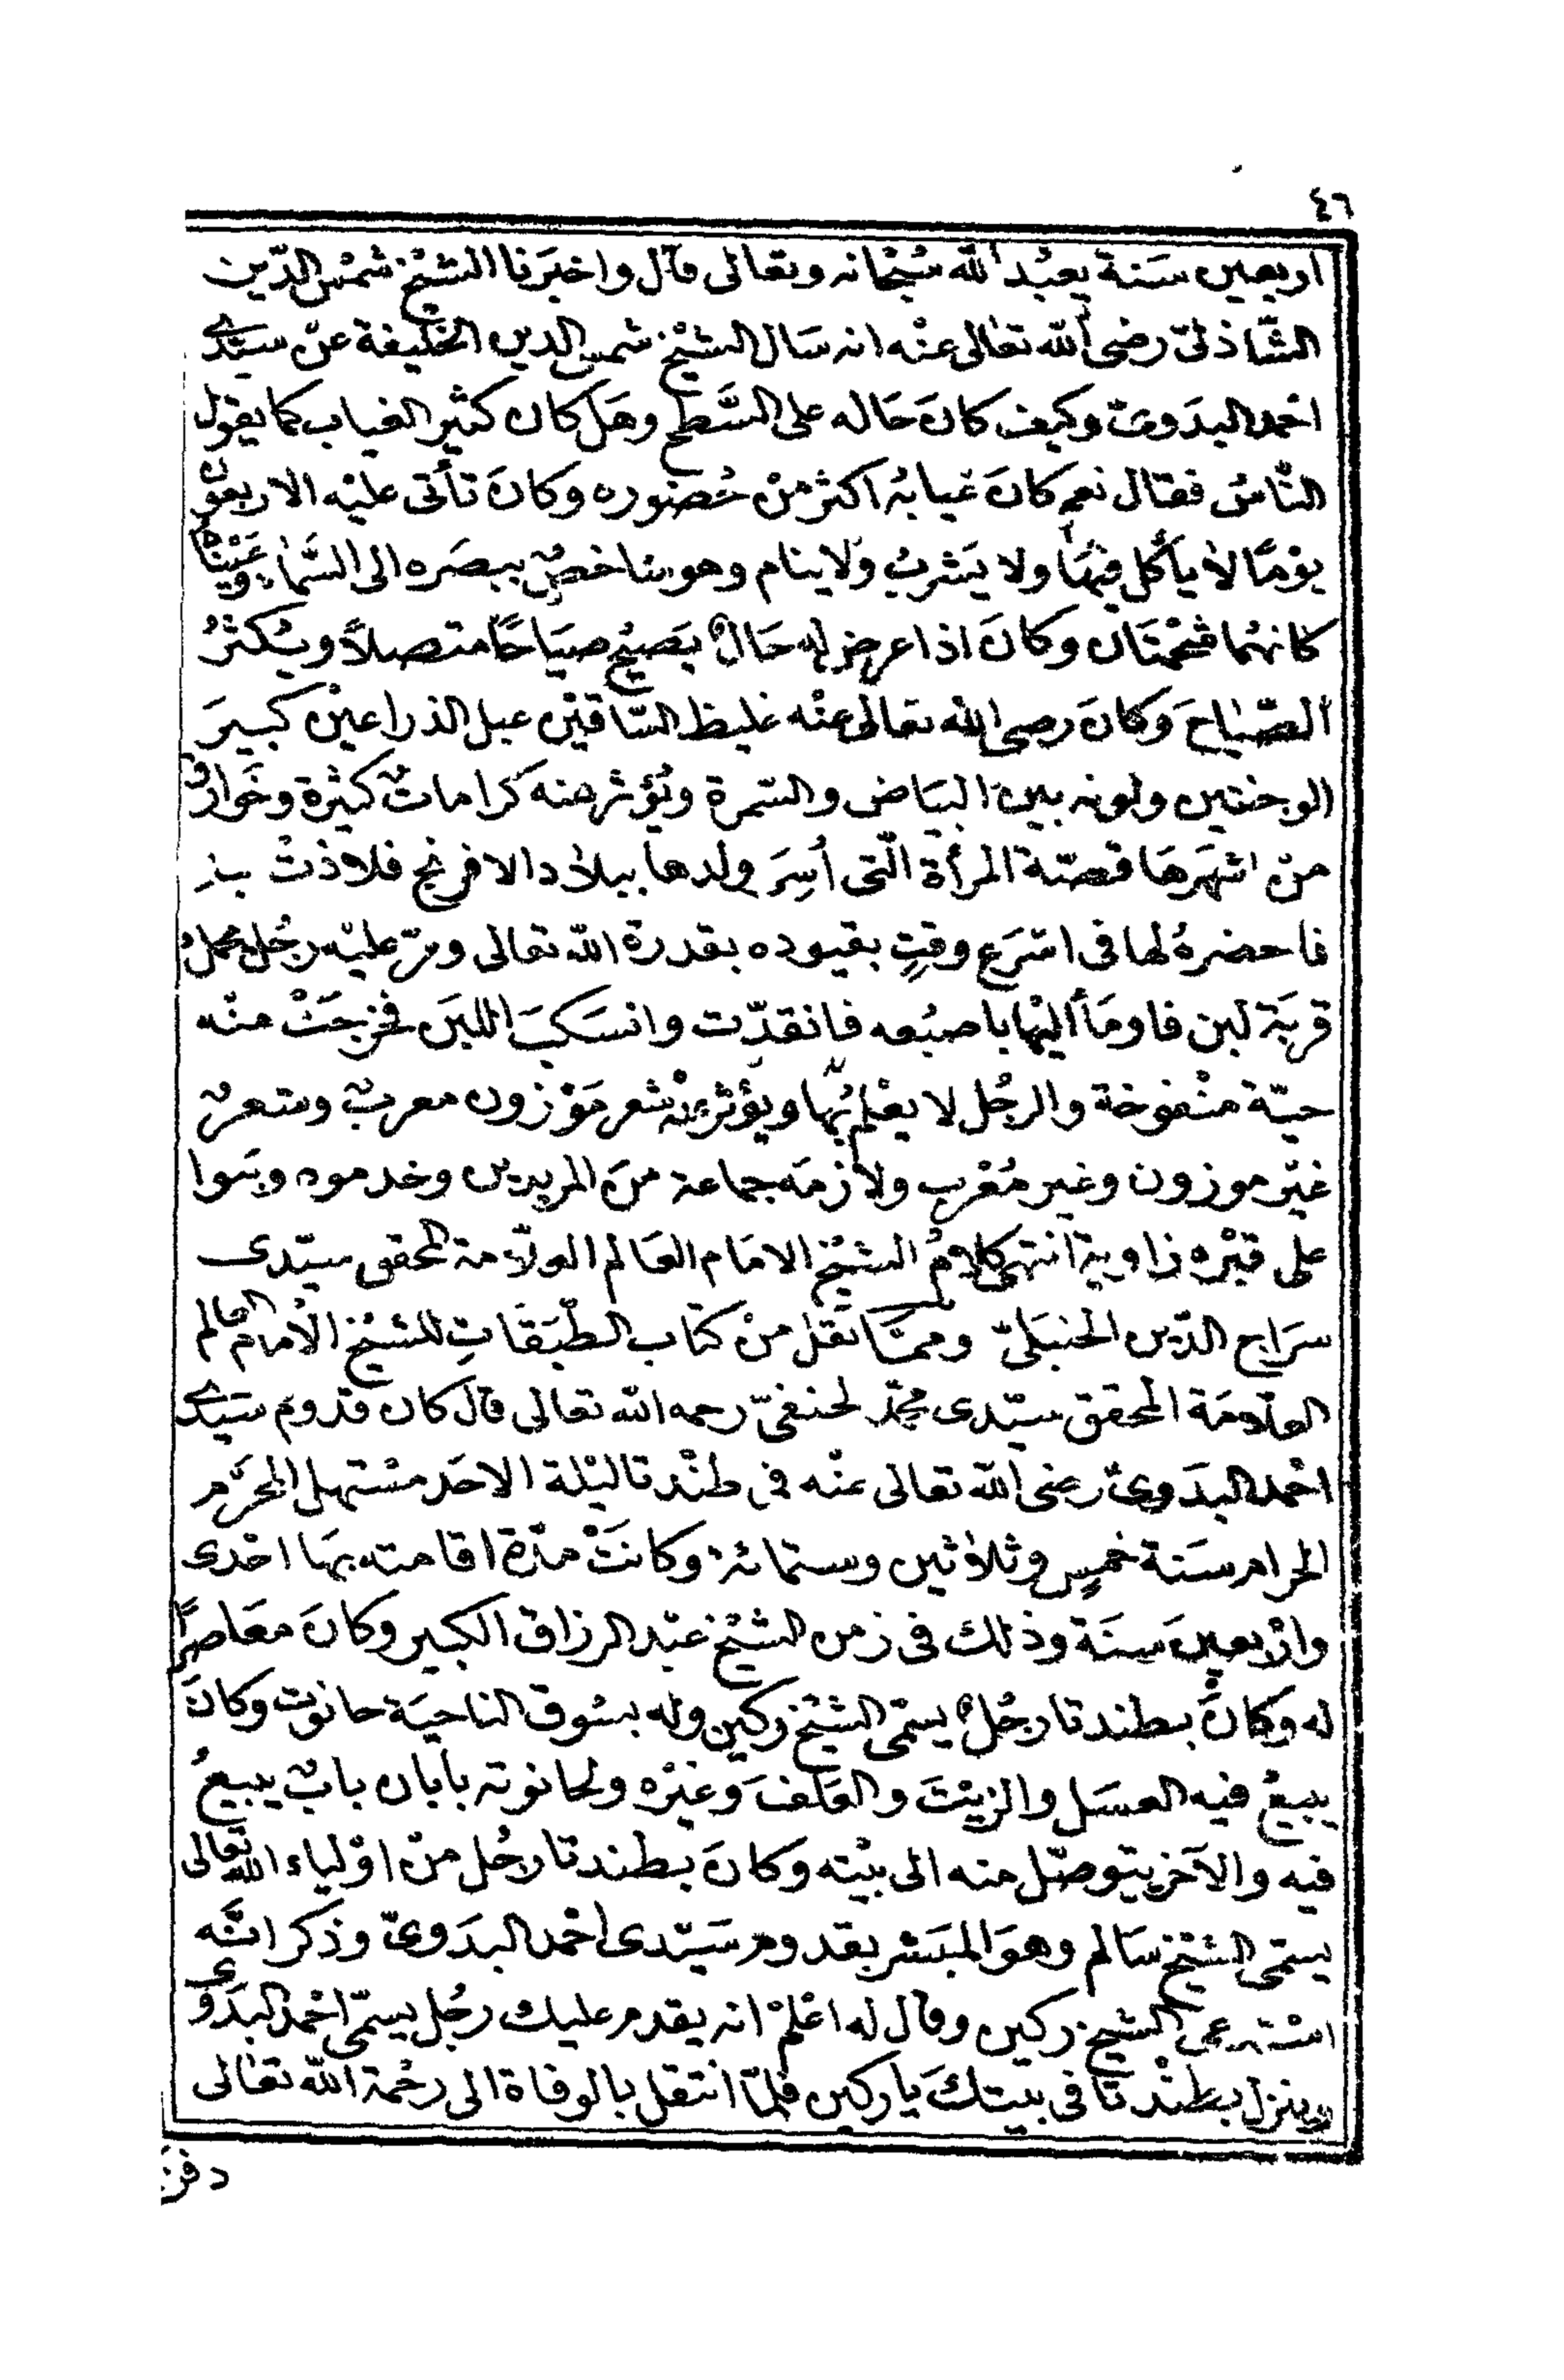 ٤٦
اربعين سَنة يعبُد الله سُبْحانه وتعالى قال واخبَرنا الشيْخ شمْس الدّين
الشّاذلىّ رضى الله تعالى عنْه انه سَال الشيْخ شمس الدين الخليفة عنْ سيّدى
احْمد البدَوىّ وكيف كانَ حَاله على السَّطح وهَل كان كثير الغياب كما يقول
النّاسُ فقال نعم كانَ غيابُه اكثر منْ حُضوره وكانَ تأتى عليْه الاربعون
يوْمًا لا يأكل فيْها ولا يَشربُ ولا ينام وهو شاخصٌ ببصَره الى السَّماء وعَيْنَاه
كانهُما فحْمتَان وكانَ اذا عرض له حَالٌ يَصيْح صيَاحًا متصلاً ويُكثرُ
الصّياحَ وَكانَ رضى الله تعالى عنْه غليظ السّاقيْن عبل الذراعيْن كبيرَ
الوجنتين ولونه بين البيَاض والسّمرة ويُؤثر منه كراماتٌ كثيرْة وخَوارقُ
منْ اشهَرهَا قصّة المرأة الّتى اُسِرَ ولدها ببلاد الافرنج فلاذتْ بهِ
فاحضرهُ لها فى اسْرَع وقتٍ بقيوده بقدرة الله تعالى ومرّ عليْه رجُل يحملُ
قربَة لبن فاومَأ اليْها باصبُعه فانقدّت وانسَكبَ اللبَن فخرجَتْ منْه
حيّة منْفوخة والرجُل لا يعْلم بُها ويؤثر عنْه شعر مَوْزون معربٌ وشعرٌ
غيْر موزون وغير مُعْرب ولازمَه جماعة منَ المريدين وخدموه وبنَوا
على قبْره زاوية انتهى كلامُ الشيْخ الامَام العَالم العلاّمة المحقق سيّدى
سرَاج الدّين الحنبَلىّ وممَّا نقل منْ كتاب الطبَقَاتِ للشيْخ الاْمام العالم
العلّامَة المحقق سيّدى محمّد الحنفىّ رحمه الله تعالى قال كان قدوم سَيّدى
احْمد البدَوىّ رضى الله تعالى عنْه فى طنْدتا ليْلة الاحَد مسْتهل المحرَّم
الحرام سَنة خمسٍ وثلاثين وستمائة وكانَتْ مدّة اقامته بهَا احْدى
وارْبعينَ سنَة وذلك فى زمن الشيْخ عبْد الرزاق الكبير وكانَ معَاصرًا
له وكانَ بطندتا رجُلٌ يسمّى الشيْخ ركين وله بسُوق الناحيَة حانوت وكانَ
يبيعُ فيه العسَل والزيْتَ والعَلفَ وغيْره ولحانوته بابان بابٌ يبيعُ
فيه والآخر يتوصّل منه الى بيْته وكانَ بطندتا رجُل منْ اوْلياء الله تعالى
يسمّى الشيْخ سَالم وهوَ المبَشر بقدوم سَيّدى احْمد البدَوىّ وذكر انّه
اسْتدعى الشيخ ركين وقال له اعْلمْ انه يقدم عليك رجُل يسمّى احْمد البدَوى
وينزل بطنْدتا فى بيتكَ يا ركين فلمّا انتقل بالوفاة الى رحْمة الله تعَالى
دفن